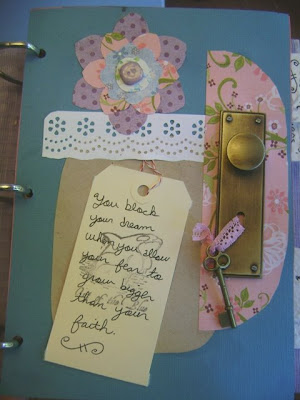 You block
your dream
when you allow
your fear to
grow bigger
than your
faith.